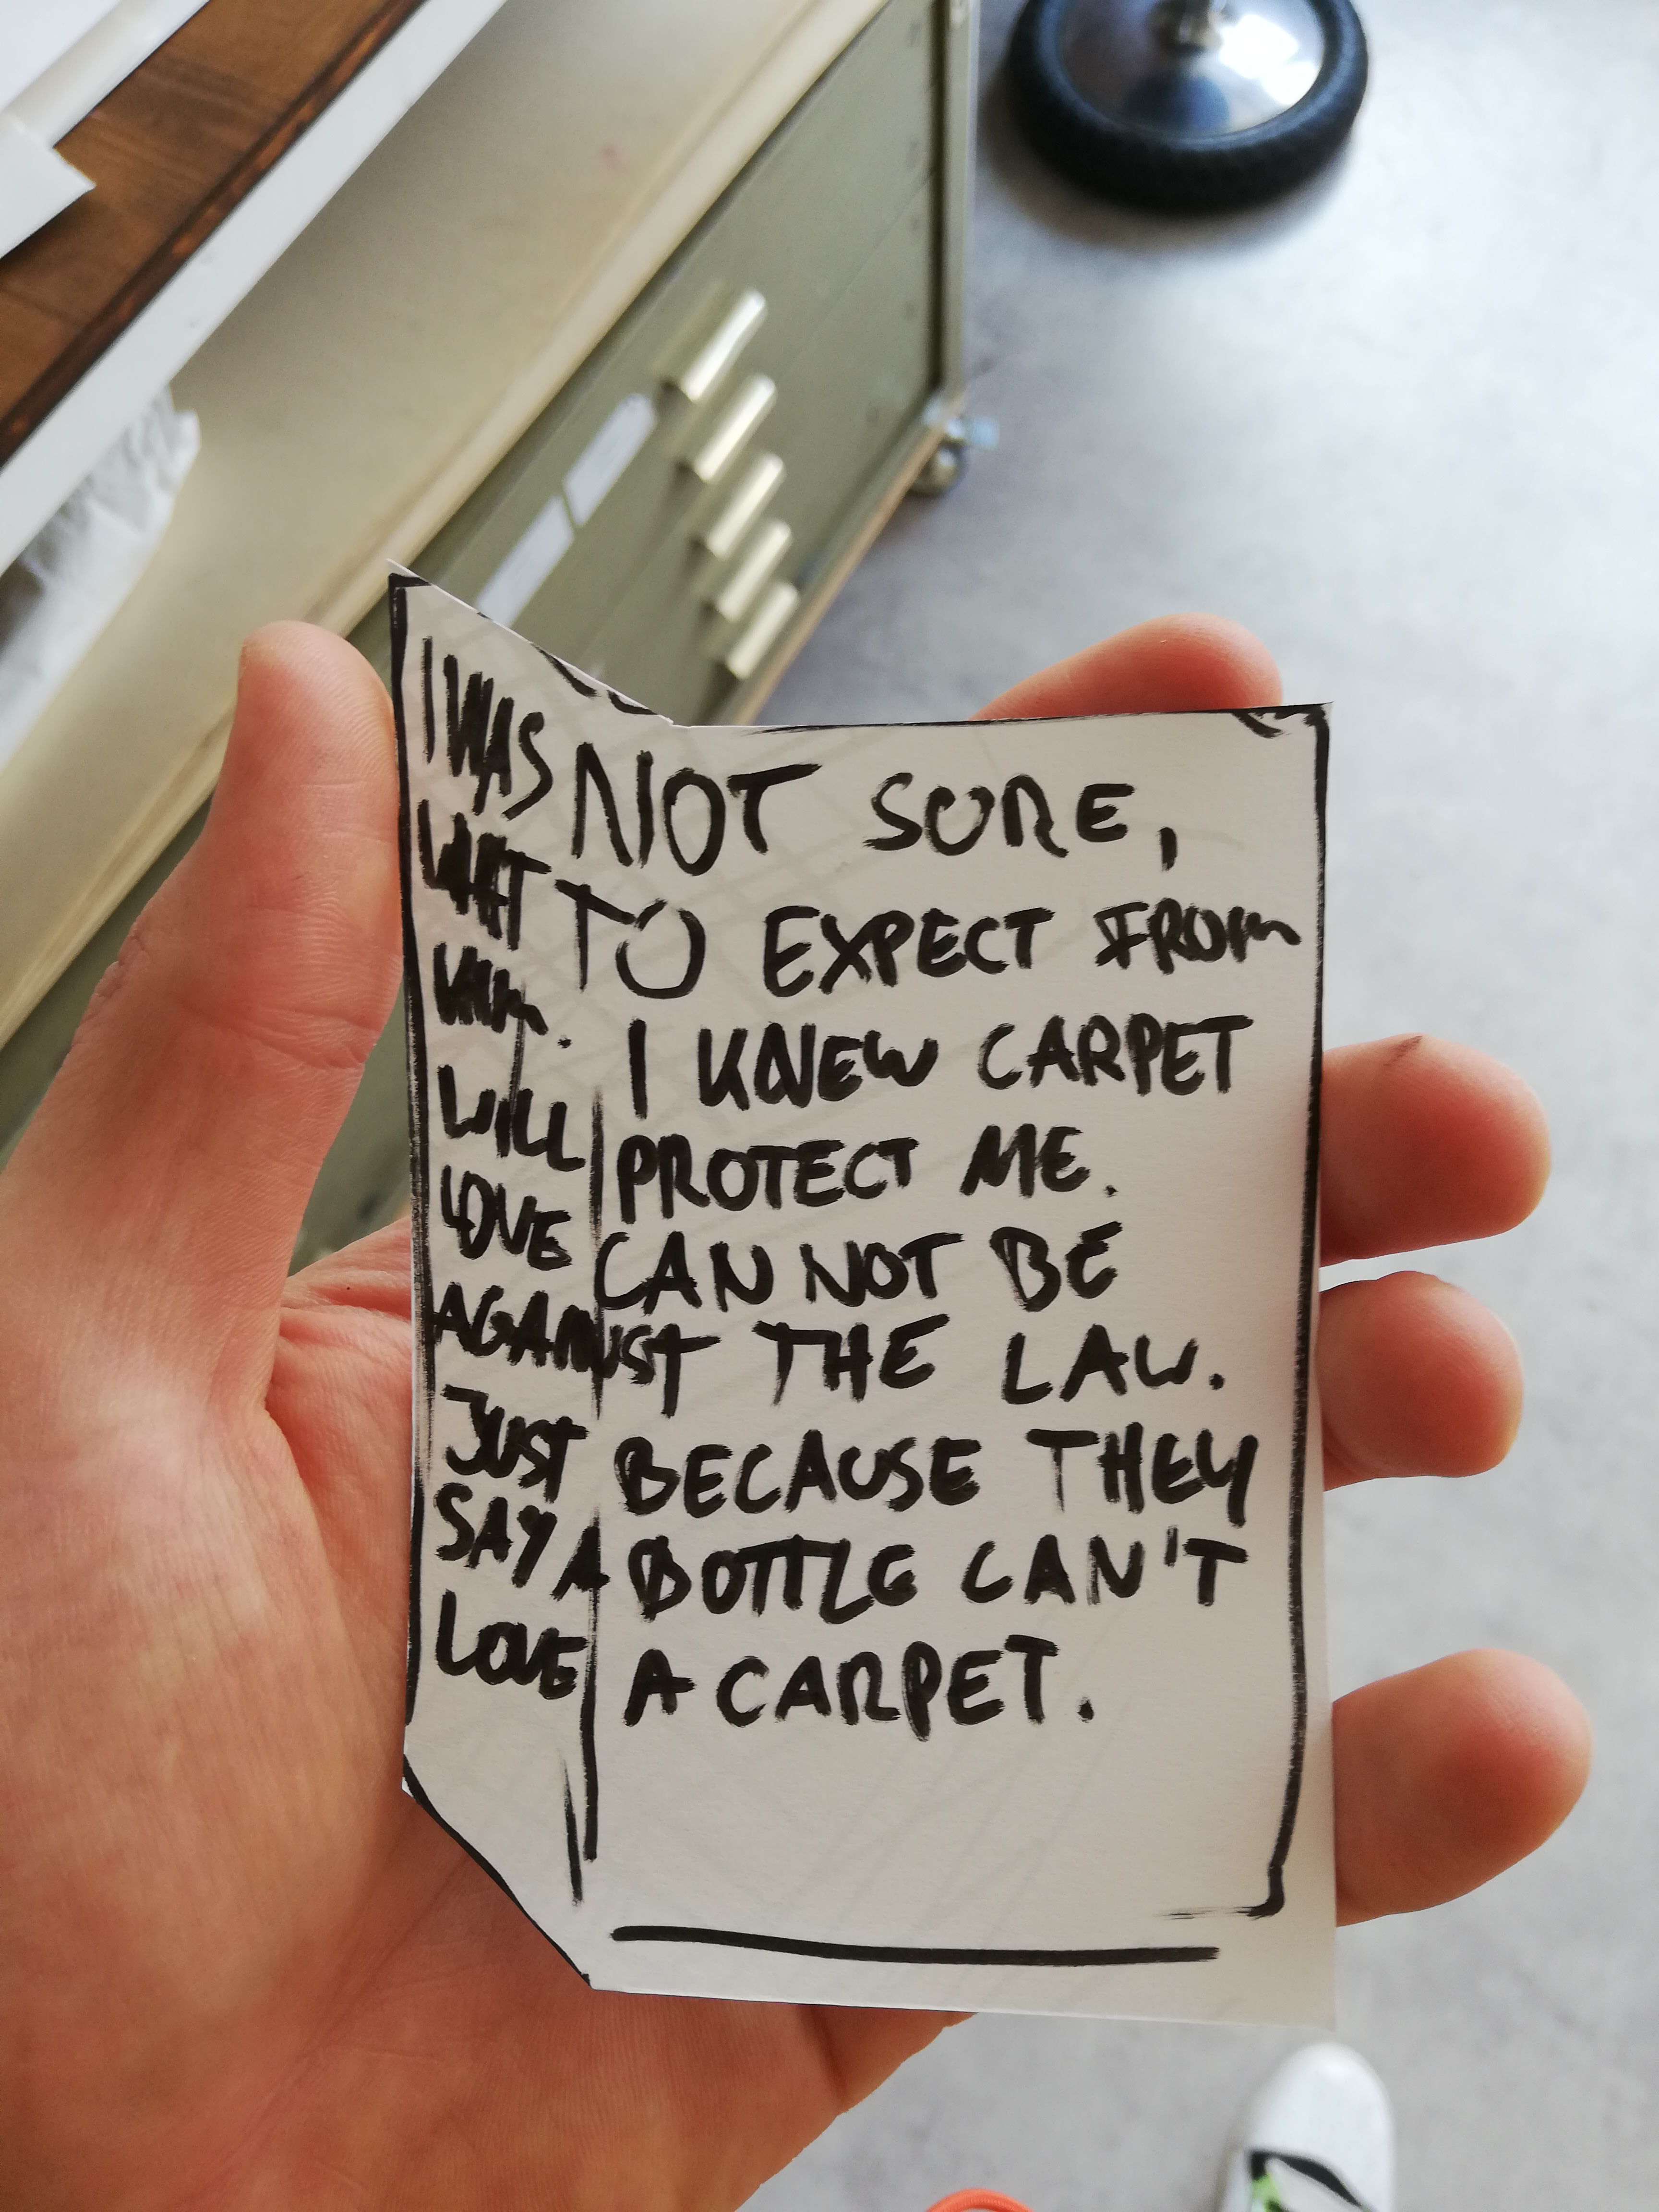 I WAS NOT SURE,
WHAT TO EXPECT FROM
HIM. I KNEW CARPET
WILL PROTECT ME.
LOVE CAN NOT BE
AGAINST THE LAW.
JUST BECAUSE THEY
SAY A BOTTLE CAN'T
LOVE A CARPET.